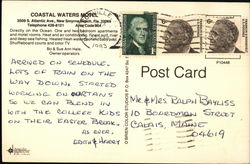 COASTAL WATERS MOTEL
3509 S. Atlantic Ave., New Smyrna Beach, Fla. 32069
Telephone 428-6121 Area Code 904
Directly on the Ocean. One and two bedroom apartments
and motel rooms. Heat and air conditioning.
and deep sea fishing. Heated fresh water
Shuffleboard courts and color TV.
Bo & Sue Ann Hale,
Owner-operators
1983
Post Card
P10448
ARRIVED ON SCHEDULE.
LOTS OF TRAIN ON THE
WAY DOWN. STARTED
WORKING ON OUR TANS
SO WE CAN BLEND IN
WITH THE COLLEGE KIDS
ON THEIR EASTER BREAK.
AS EVER,
EDIE & HARRY
MR & MRS RALPH BAYLISS
10 BOARDMAN STREET
CALAIS, MAINE
04619